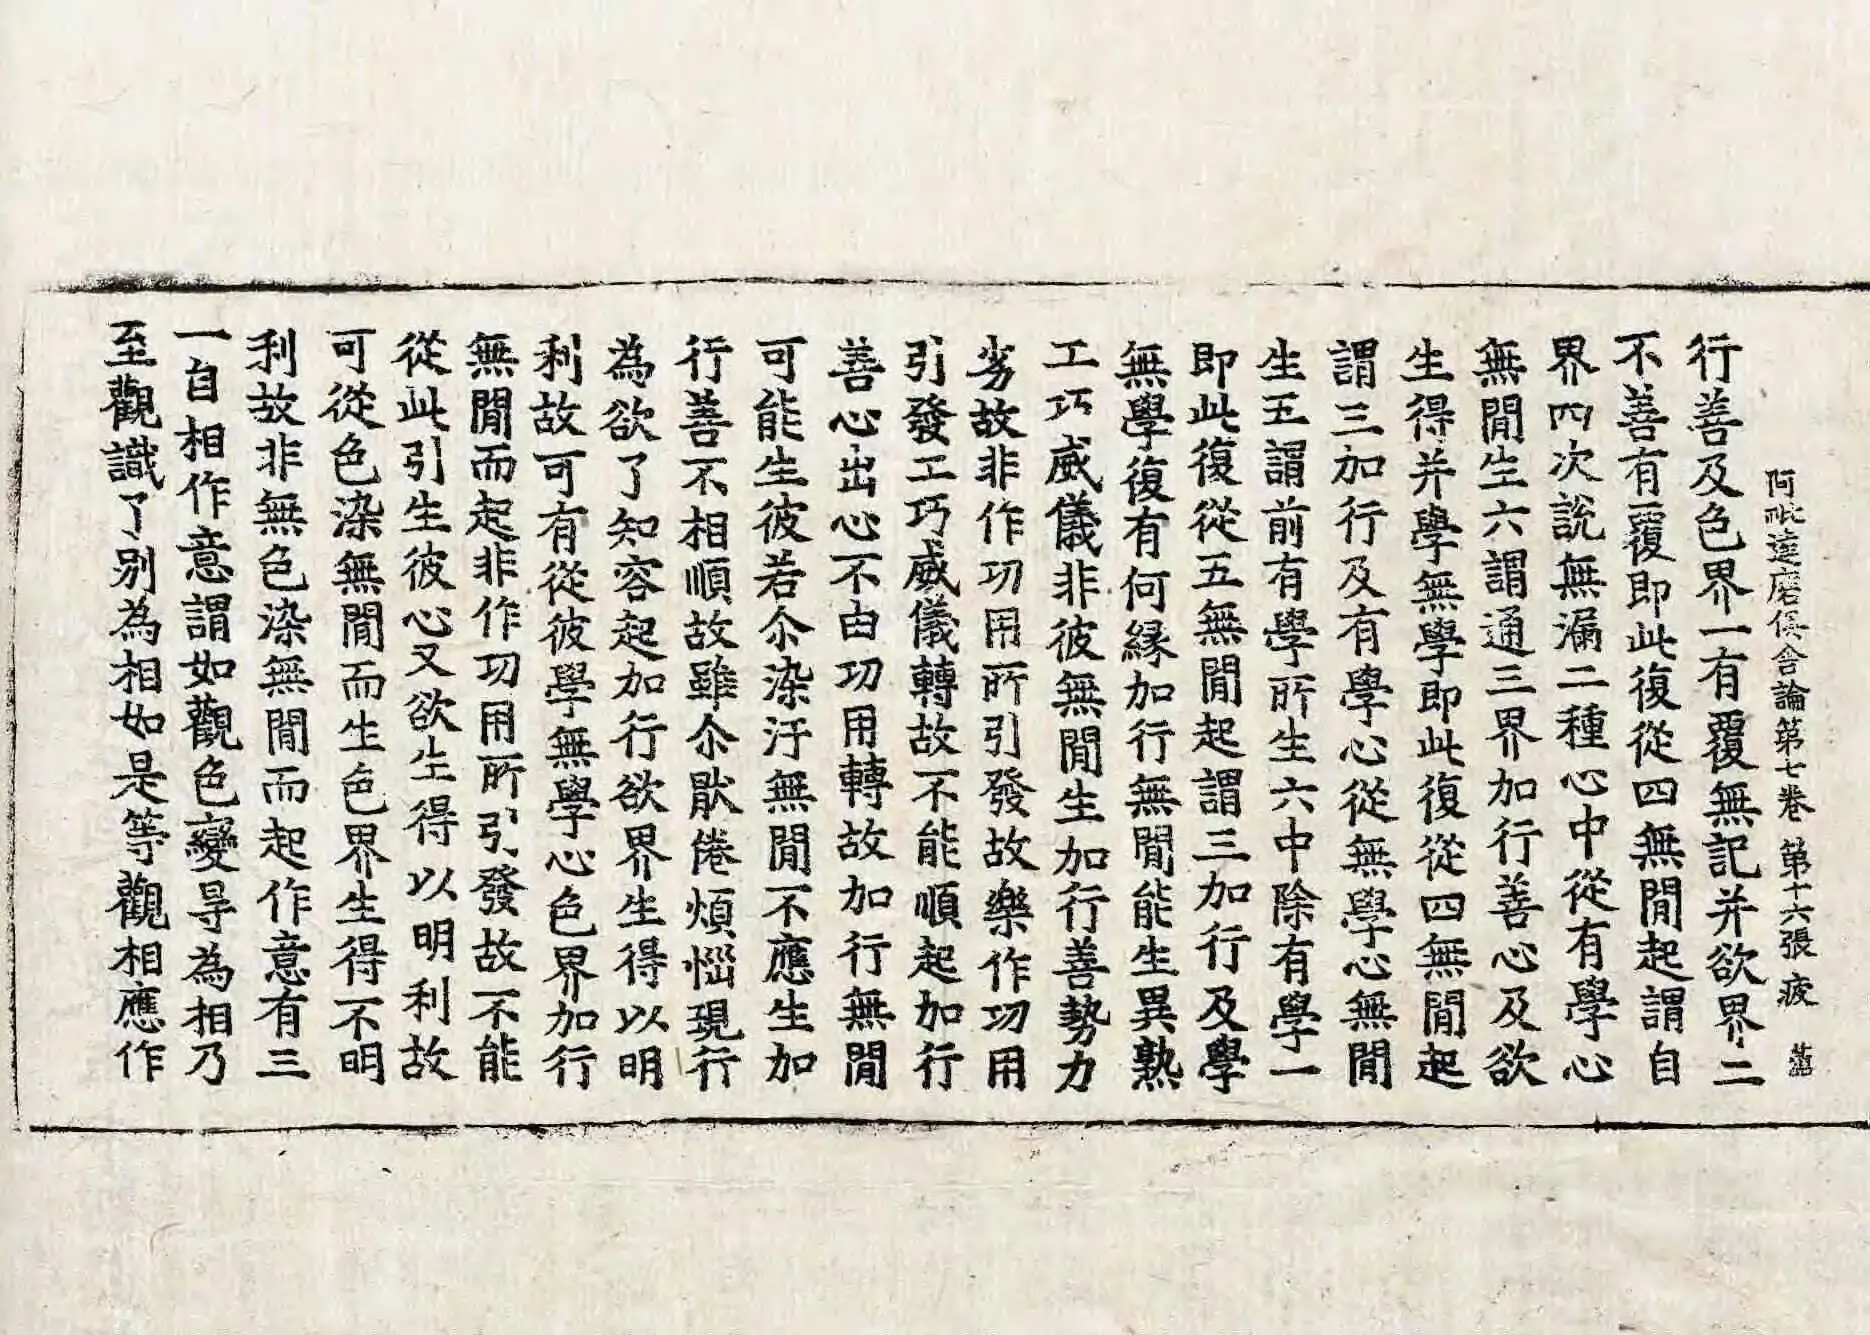 阿毗達磨俱舍論第七卷 第十六張 疲
行善及色界一有覆無記并欲界二
不善有覆即此復從四無閒起謂自
界四次說無漏二種心中從有學心
無閒生六謂通三界加行善心及欲
生得并學無學即此復從四無閒起
謂三加行及有學心從無學心無閒
生五謂前有學所生六中除有學一
即此復從五無閒起謂三加行及學
無學復有何緣加行無閒能生異熟
工巧威儀非彼無閒生加行善勢力
劣故非作功用所引發故樂作功用
引發工巧威儀轉故不能順起加行
善心出心不由功用轉故加行無閒
可能生彼若尒染汙無閒不應生加
行善不相順故雖尒猒倦煩惱現行
為欲了知容起加行欲界生得以明
利故可有從彼學無學心色界加行
無閒而起非作功用所引發故不能
從此引生彼心又欲生得以明利故
可從色染無閒而生色界生得不明
利故非無色染無閒而起作意有三
一自相作意謂如觀色變㝵為相乃
至觀識了別為相如是等觀相應作